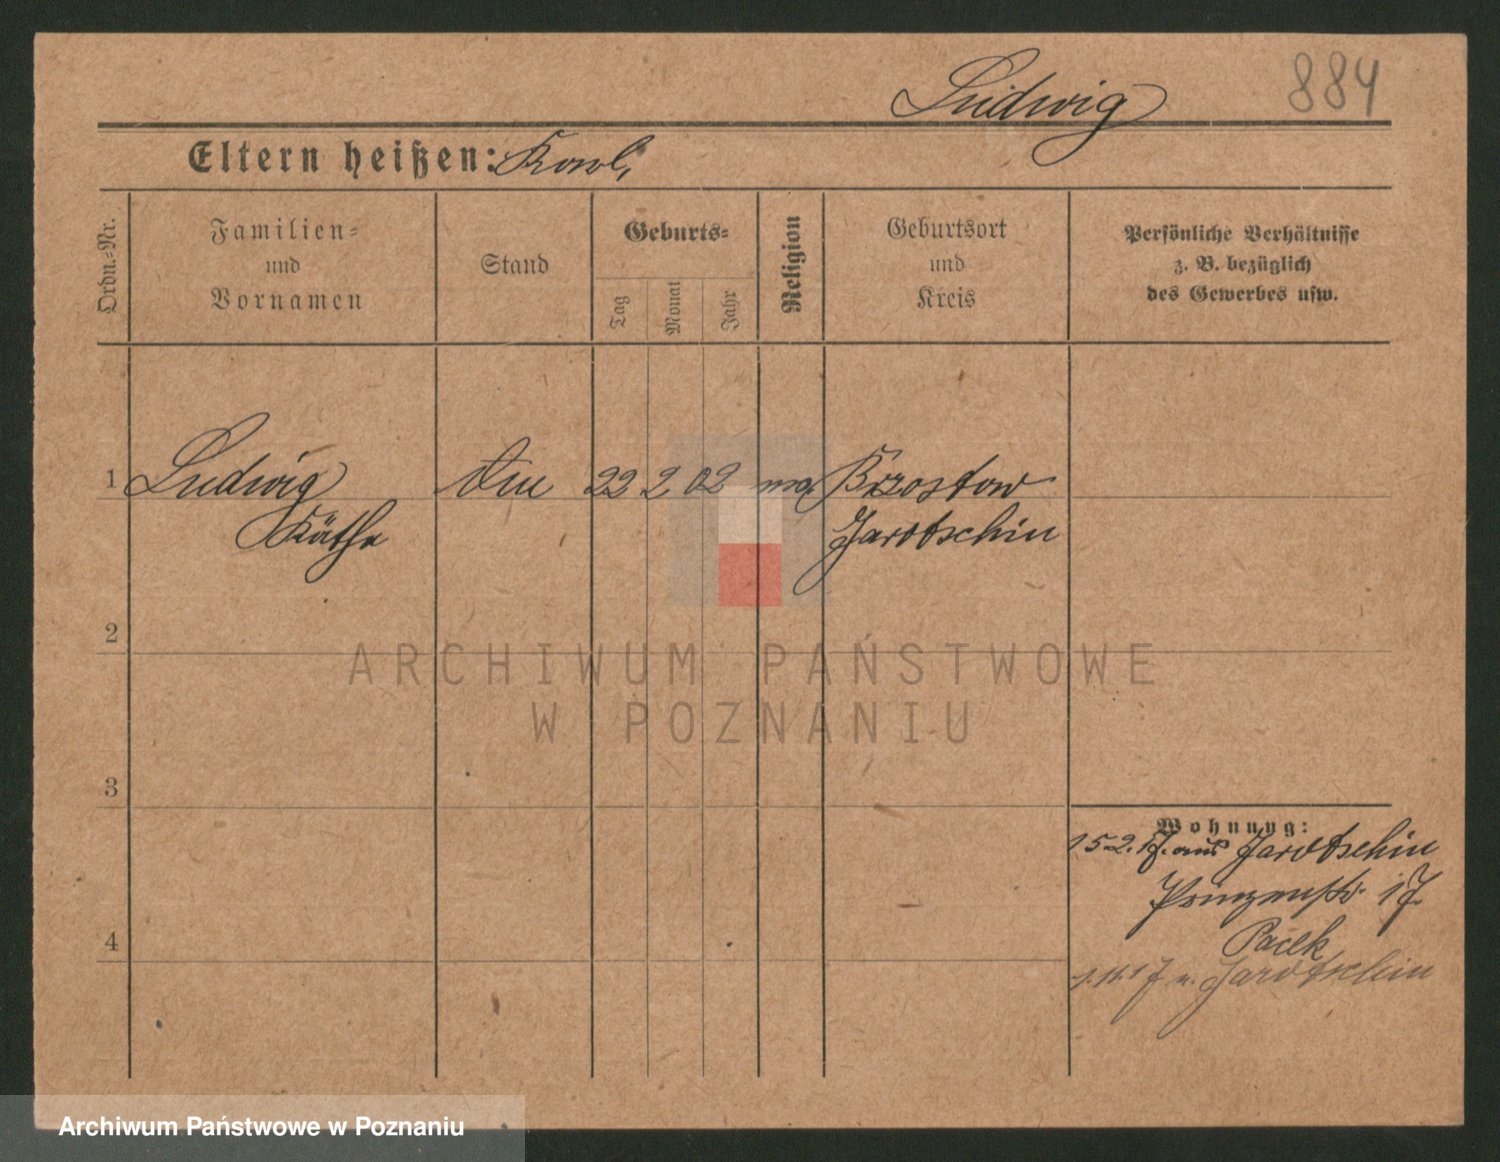 Ludwig 884
Eltern heißen: Karl,
Ordn.-Nr.
Familien=
und
Vornamen
Stand
Geburts=
Tag
Monat
Jahr
Religion
Geburtsort
und
Kreis
Persönliche Verhältnisse
z. B. bezüglich
des Gewerbes usw.
1 Ludwig 22 2 02 Brzostow
Käthe Jarotschin
2
3
4
Wohnung:
15 2. 17. aus Jarotschin
Prinzenstr. 17.
Pacek
Jarotschin
ARCHIWUM PAŃSTWOWE
W POZNANIU
Archiwum Państwowe w Poznaniu